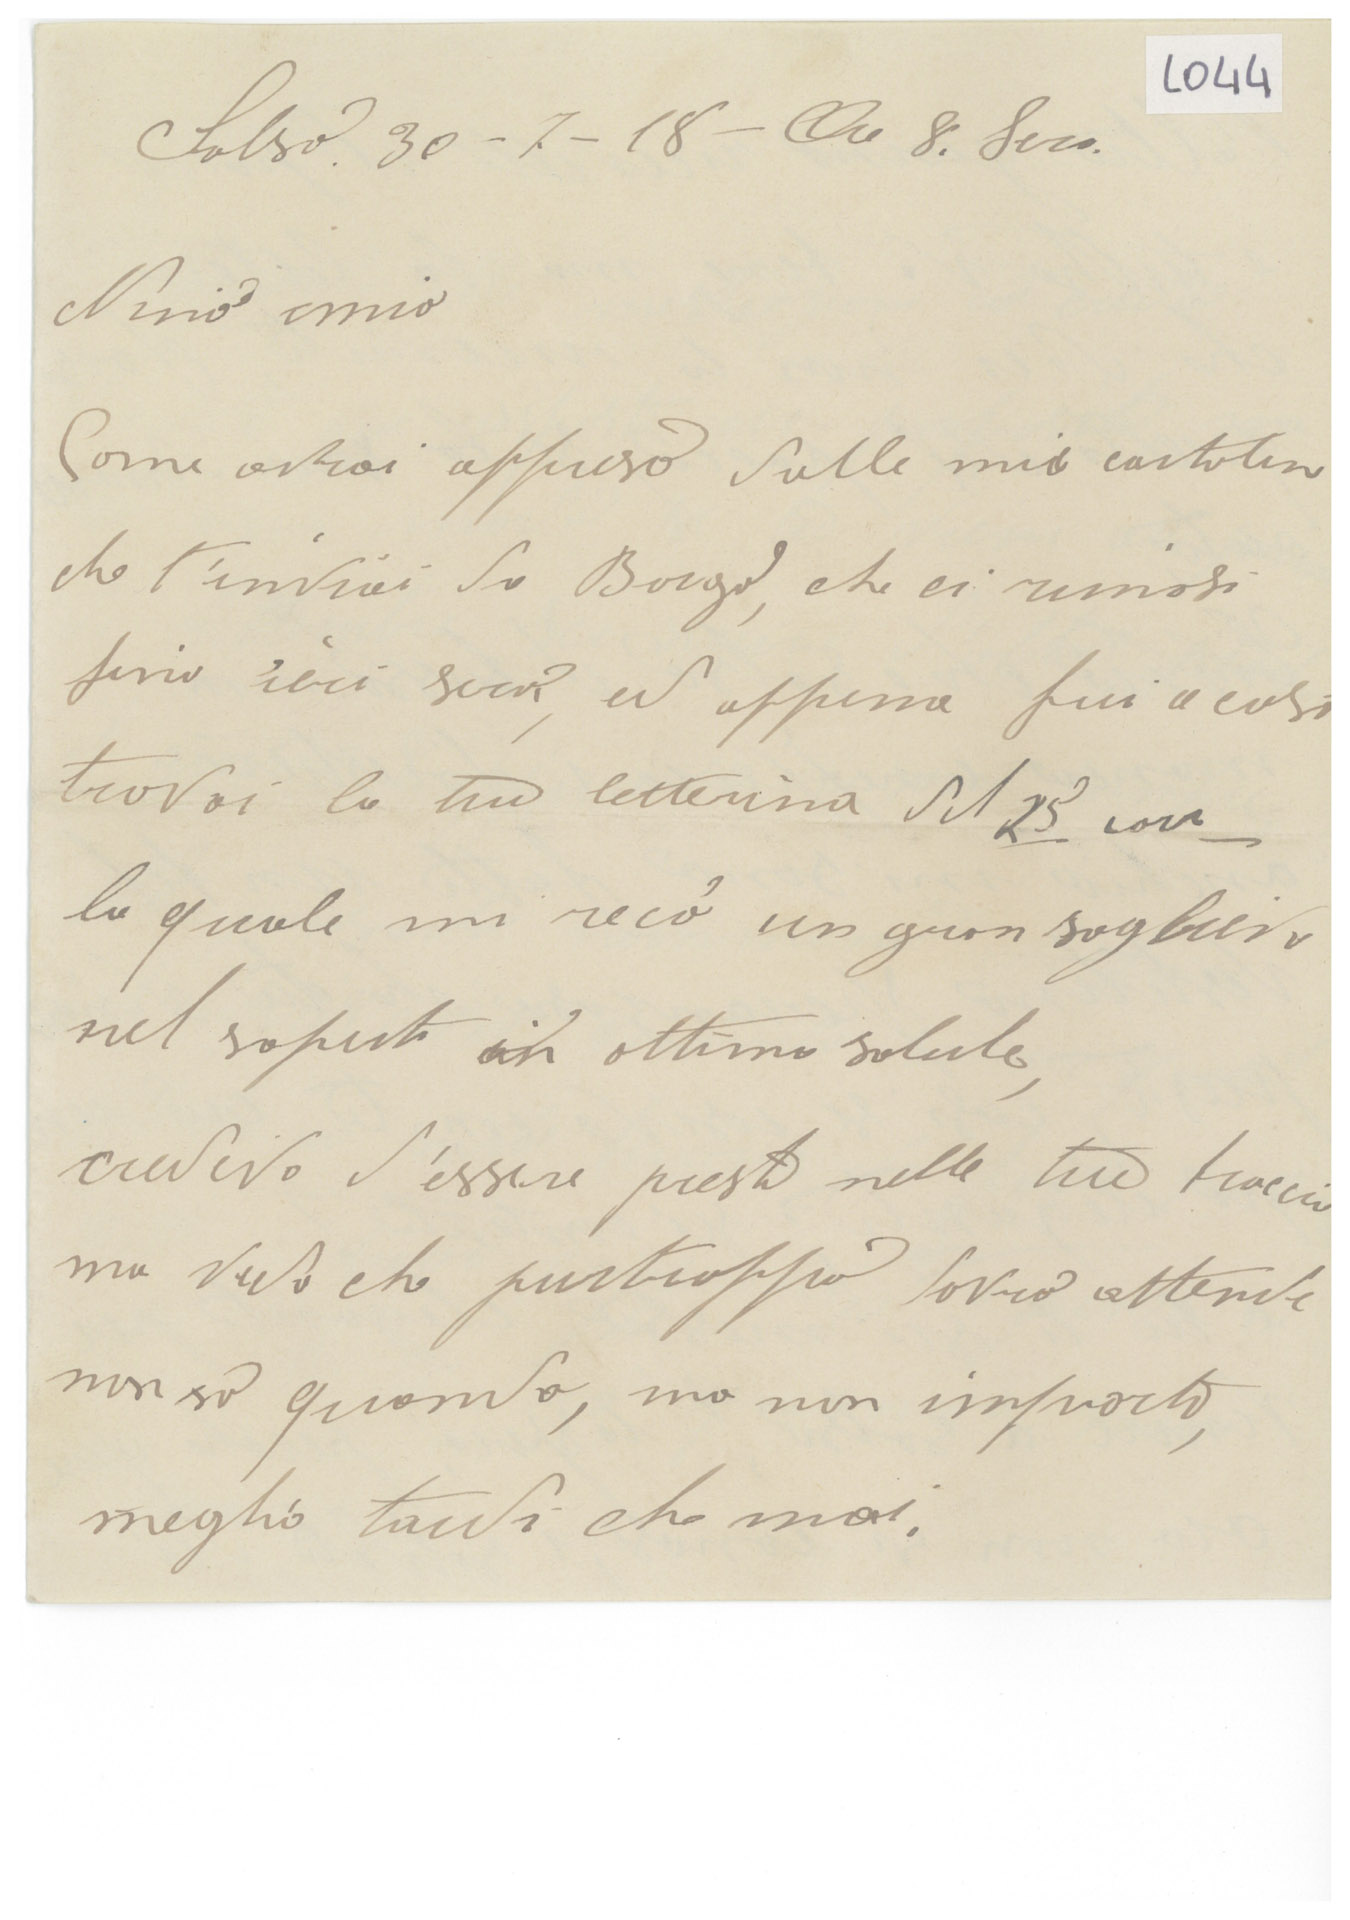 L044
Salso. 30-7-18 - Ore 8. Sera.
Nino mio
Come avrai appreso dalle mie cartoline
che t'inviai da Borgo, che ci rimasi
fino ieri sera, ed appena fui a casa
trovai la tua letterina del 25 corr
la quale mi recò un gran soglievo
nel saperti in ottima salute,
credevo d'essere presto nelle tue braccia
ma vedo che purtroppo dovrò attende
non so quando, ma non importa,
meglio tardi che mai.